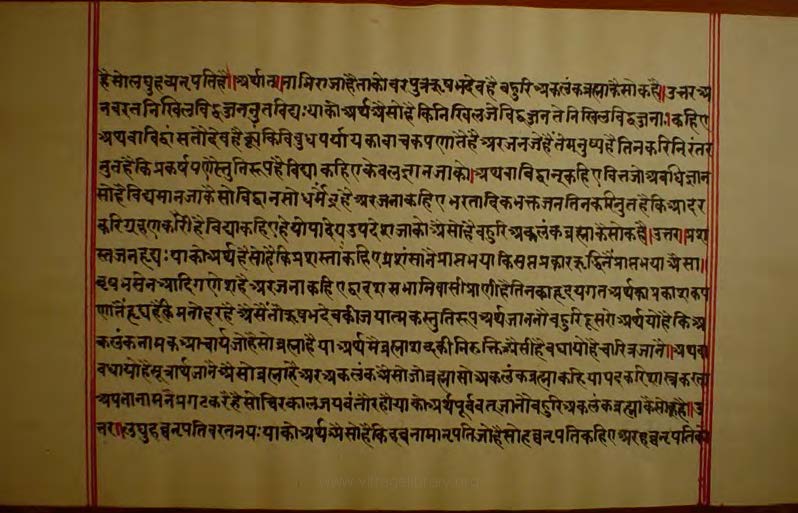 है सो लघुहव्वनृपति है॥ अर्थात् नाभिराजा है ताको वर पुत्र ऋषभदेव है बहुरि अकलंकब्रह्मा कैसो कहै॥ उत्तर अ
नवरतनिखिलविद्वज्जननुतविद्यः याको अर्थ अैसो है कि निखिल जे विद्वज्जन ते निखिलविद्वज्जनाः कहिए
अथवा विद्वांस तो देव है क्यूं कि विबुध पर्याय का वाचकपणा तें है अर जन जे है ते मनुष्य है तिन करि निरंतर
नुत है कि प्रकर्षपणे स्तुतिरूप है विद्या कहिए केवलज्ञान जाको॥ अथवा विद्वान् कहिए वित् जो अवधिज्ञान
सो है विद्यमान जाकै सो विद्वान सो धर्मेंद्र है अर जना कहिए भरतादिक भक्तजन तिन करि नुत है कि आदर
करि ग्रहण करी है विद्या कहिए हेयोपादेय उपदेश जाको अैसो है बहुरि अकलंकब्रह्मा कैसो कहै॥ उत्तर॥ प्रश
स्तजनहृद्यः याको अर्थ अैसो है कि प्रशस्ताः कहिए प्रशंसा नै प्राप्त भया कि सप्त प्रकार ऋद्धि नै प्राप्त भया अैसा॥
वृषभसेन आदि गणेश है अर जना कहिए द्वादश सभानिवासी प्राणी है तिन का हृदयगत अर्थ का प्रकाशकप
णा तैं हृद्य है कि मनोहर है अैसै तो ऋषभदेव की जयात्मक स्तुतिरूप अर्थ जाननो बहुरि दूसरो अर्थ यो है कि अ
कलंक नामक आचार्य जो है सो ब्रह्मा है या अर्थ मै ब्रह्मा शब्द की निरुक्ति अैसी है बधायो है चारित्र जानै॥ अथवा
बधायो है सूत्रार्थ जानै अैसो ब्रह्मा है अर अकलंक अैसो जो ब्रह्मा सो अकलंकब्रह्मा करि या पद करि शास्त्रकरता
अपना नाम नै प्रगट करै है सो चिरकाल जयवंतो रहौ याको अर्थ पूर्ववत जानौ बहुरि अकलंकब्रह्मा कैसो कहै॥ उ
त्तर॥ लघुहव्वनृपतिवरतनयः याको अर्थ अैसो है कि हव्वनामा नृपति जो है सो हव्वनृपति कहिए अर हव्वनृपति को
www.vitragelibrary.org